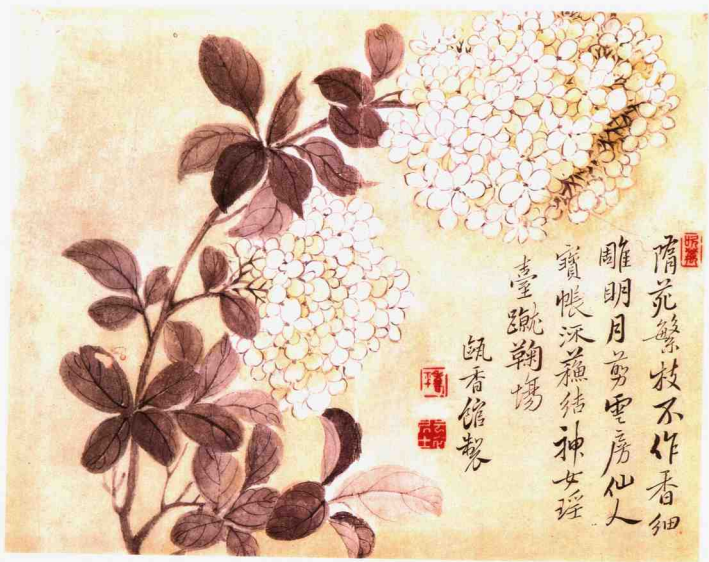 隋苑繁枝不作香細
雕明月剪雲房仙人
寶帳流蘓結神女瑶
臺蹴鞠塲
甌香館製